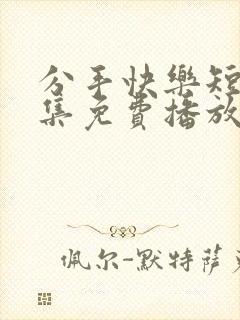 分手快樂短
集免費播放
佩尔-默特萨